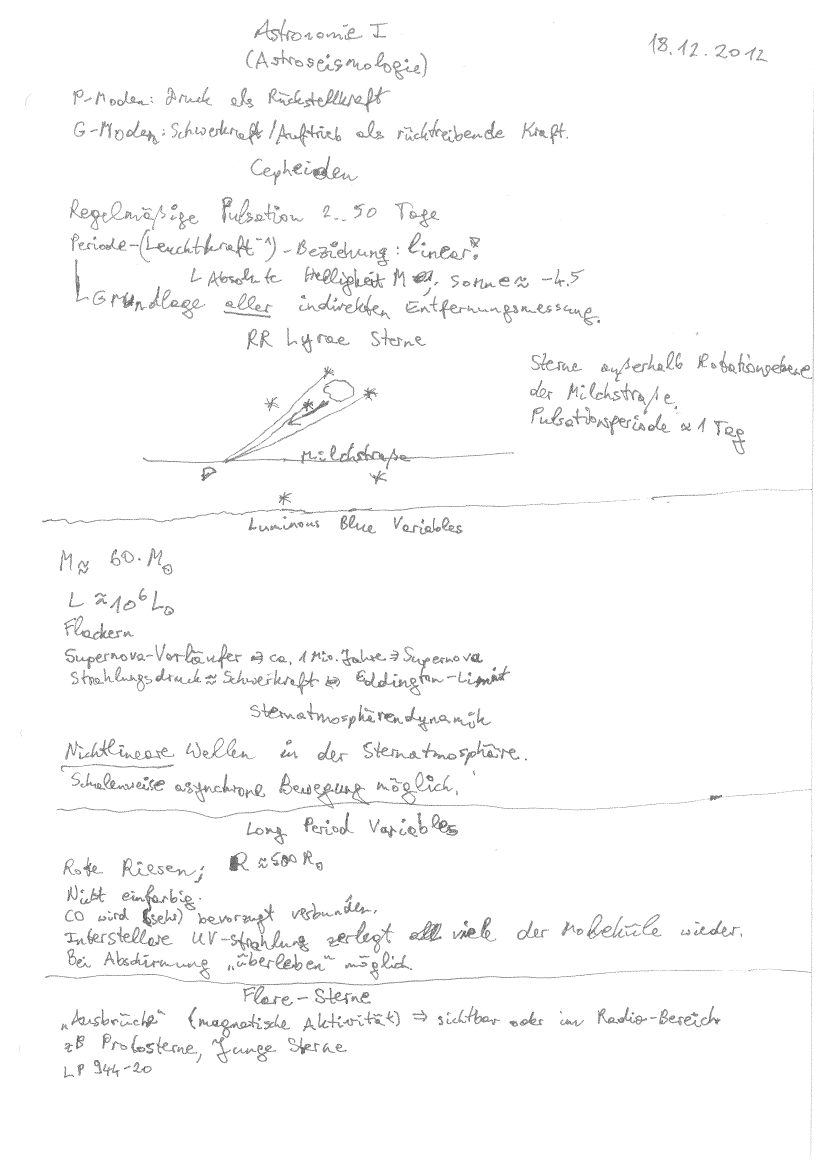 Astronomie I
18.12.2012
(Astroseismologie)
P-Moden: Druck als Rückstellkraft
G-Moden: Schwerkraft/Auftrieb als rücktreibende Kraft.
Cepheiden
Regelmäßige Pulsation 2..50 Tage
Periode-(Leuchtkraft⁻¹)-Beziehung: linear
Absolute Helligkeit M Sonne ≈ -4.5
Grundlage aller indirekten Entfernungsmessung.
RR Lyrae Sterne
Sterne außerhalb Rotationsebene
der Milchstraße.
Pulsationsperiode ≈ 1 Tag
Milchstraße
Luminous Blue Variables
M ≈ 60·M⊙
L ≈ 10⁶ L⊙
Flackern
Supernova-Vorläufer ⇒ ca. 1 Mio. Jahre ⇒ Supernova
Strahlungsdruck ≈ Schwerkraft ⇔ Eddington-Limit
Sternatmosphärendynamik
Nichtlineare Wellen in der Sternatmosphäre.
Schalenweise asynchrone Bewegung möglich.
Long Period Variables
Rote Riesen; R ≈ 500 R⊙
Nicht einfarbig.
CO wird (sehr) bevorzugt verbunden.
Interstellare UV-Strahlung zerlegt viele der Moleküle wieder.
Bei Abschirmung „überleben" möglich.
Flare-Sterne
„Ausbrüche" (magnetische Aktivität) ⇒ sichtbar oder im Radio-Bereich
zB Protosterne, Junge Sterne
LP 944-20